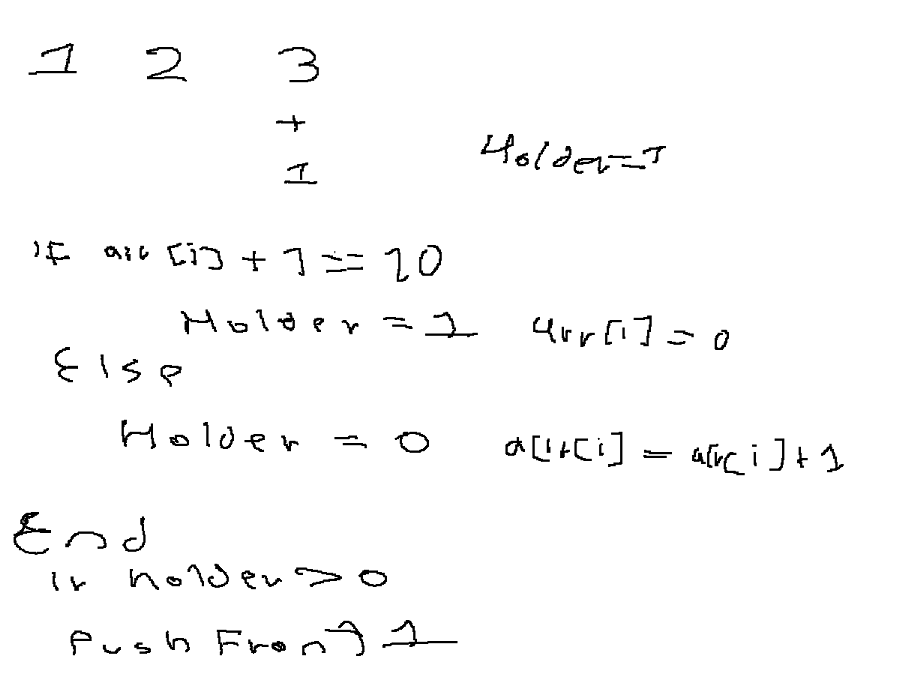 1 2 3
+
1 Holder=1
if arr[i] + 1 == 10
Holder = 1 arr[i] = 0
Else
Holder = 0 arr[i] = arr[i] + 1
End
if holder > 0
Push Front 1